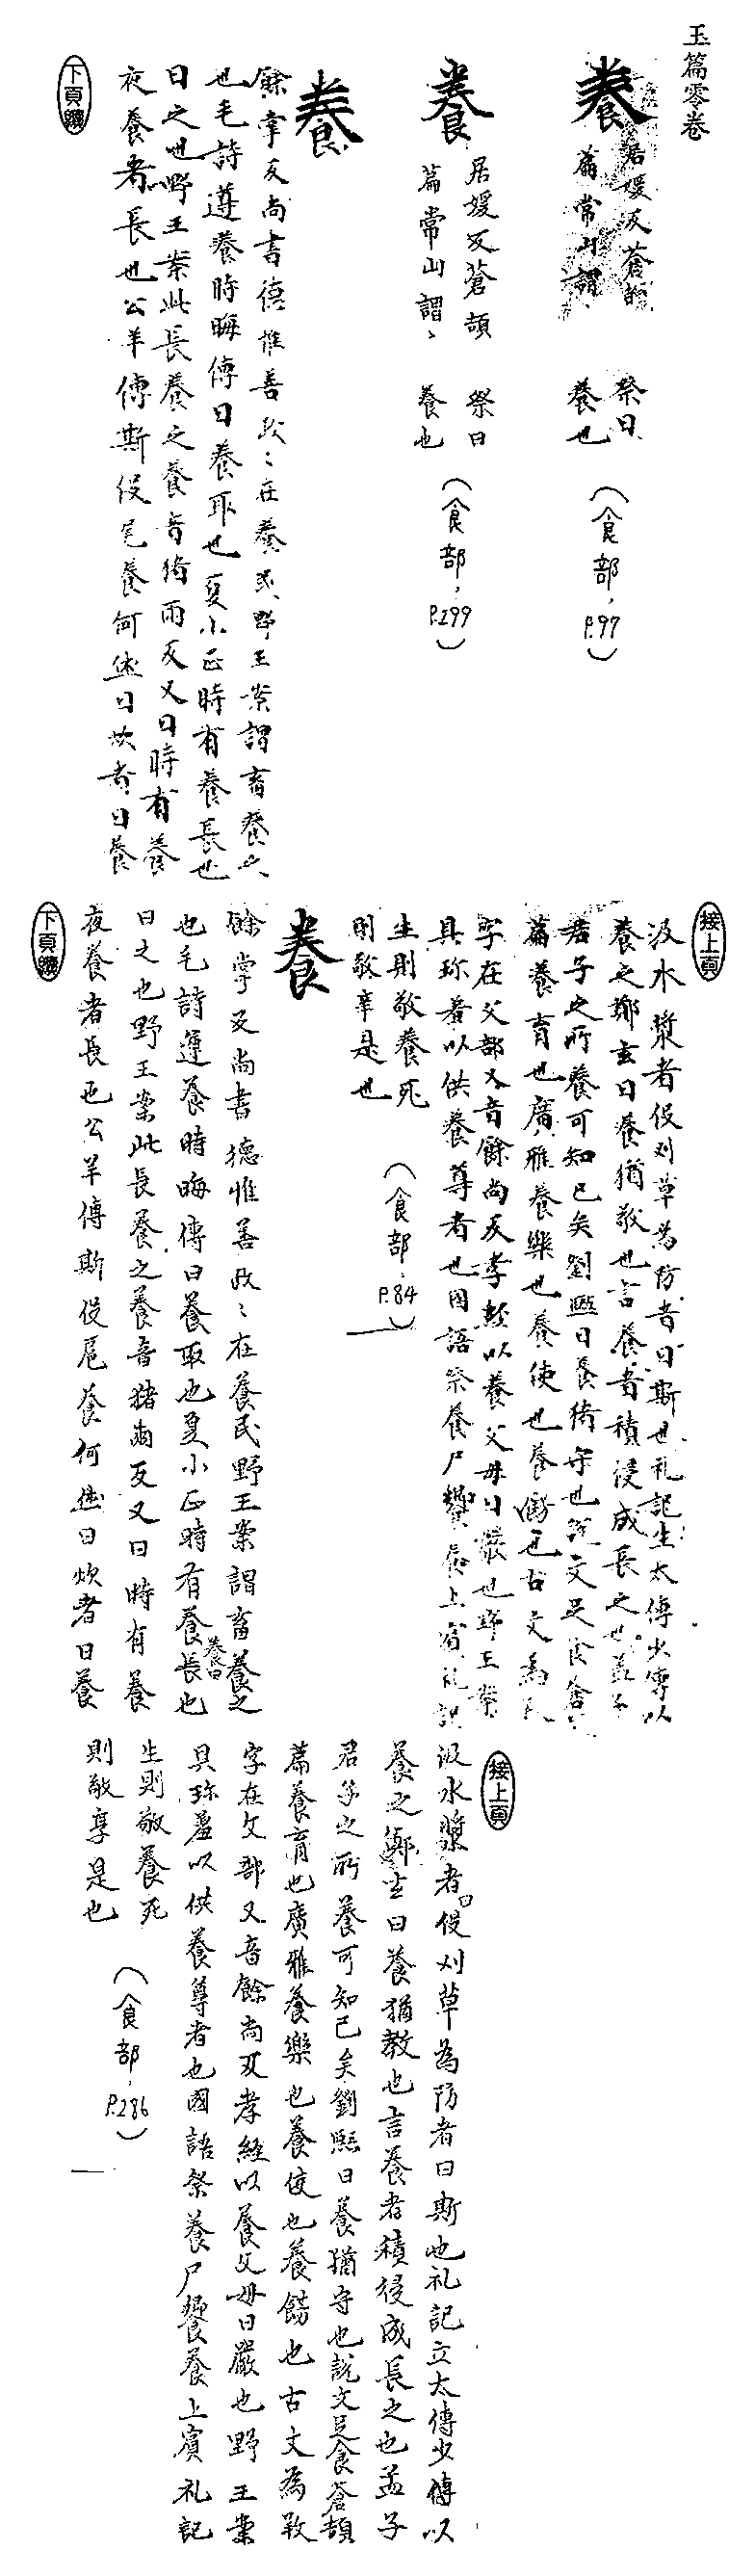 玉篇零卷
居媛反蒼頡
篇常山謂
祭曰
養也
(食部,P.97)
居媛反蒼頡
篇常山謂〻
祭曰
養也
(食部,P.299)
養
餘掌反尚書德惟善政〻在養民野王案謂畜養之
也毛詩遵養時晦傳曰養取也夏小正時有養長也
曰之也野王案此長養之養音猗兩反又曰時有養
夜養者長也公羊傳斯役扈養何休曰炊者曰養
下頁續
接上頁
汲水漿者役刈草為防者曰斯也礼記立太傅少傅以
養之鄭玄曰養猶教也言養者積浸成長之也孟子
君子之所養可知已矣劉熙曰養猶守也說文足食蒼頡
篇養育也廣雅養樂也養使也養餝也古文為𢼝
字在攴部又音餘尚反孝經以養父母曰嚴也野王案
具珎羞以供養尊者也國語祭養尸饗養上賓礼記
生則敬養死
則敬享是也
(食部,P.84)
養
餘掌反尚書德惟善政〻在養民野王案謂畜養之
也毛詩遵養時晦傳曰養取也夏小正時有養長也
養曰
曰之也野王案此長養之養音猪兩反又曰時有養
夜養者長也公羊傳斯役扈養何休曰炊者曰養
下頁續
接上頁
汲水漿者曰役刈草為防者曰斯也礼記立太傅少傅以
養之鄭玄曰養猶教也言養者積浸成長之也孟子
君子之所養可知已矣劉熙曰養猶守也說文足食蒼頡
篇養育也廣雅養樂也養使也養餝也古文為𢼝
字在攵部又音餘尚反孝經以養父母曰嚴也野王案
具珎羞以供養尊者也國語祭養尸饗養上賓礼記
生則敬養死
則敬享是也
(食部,P.286)